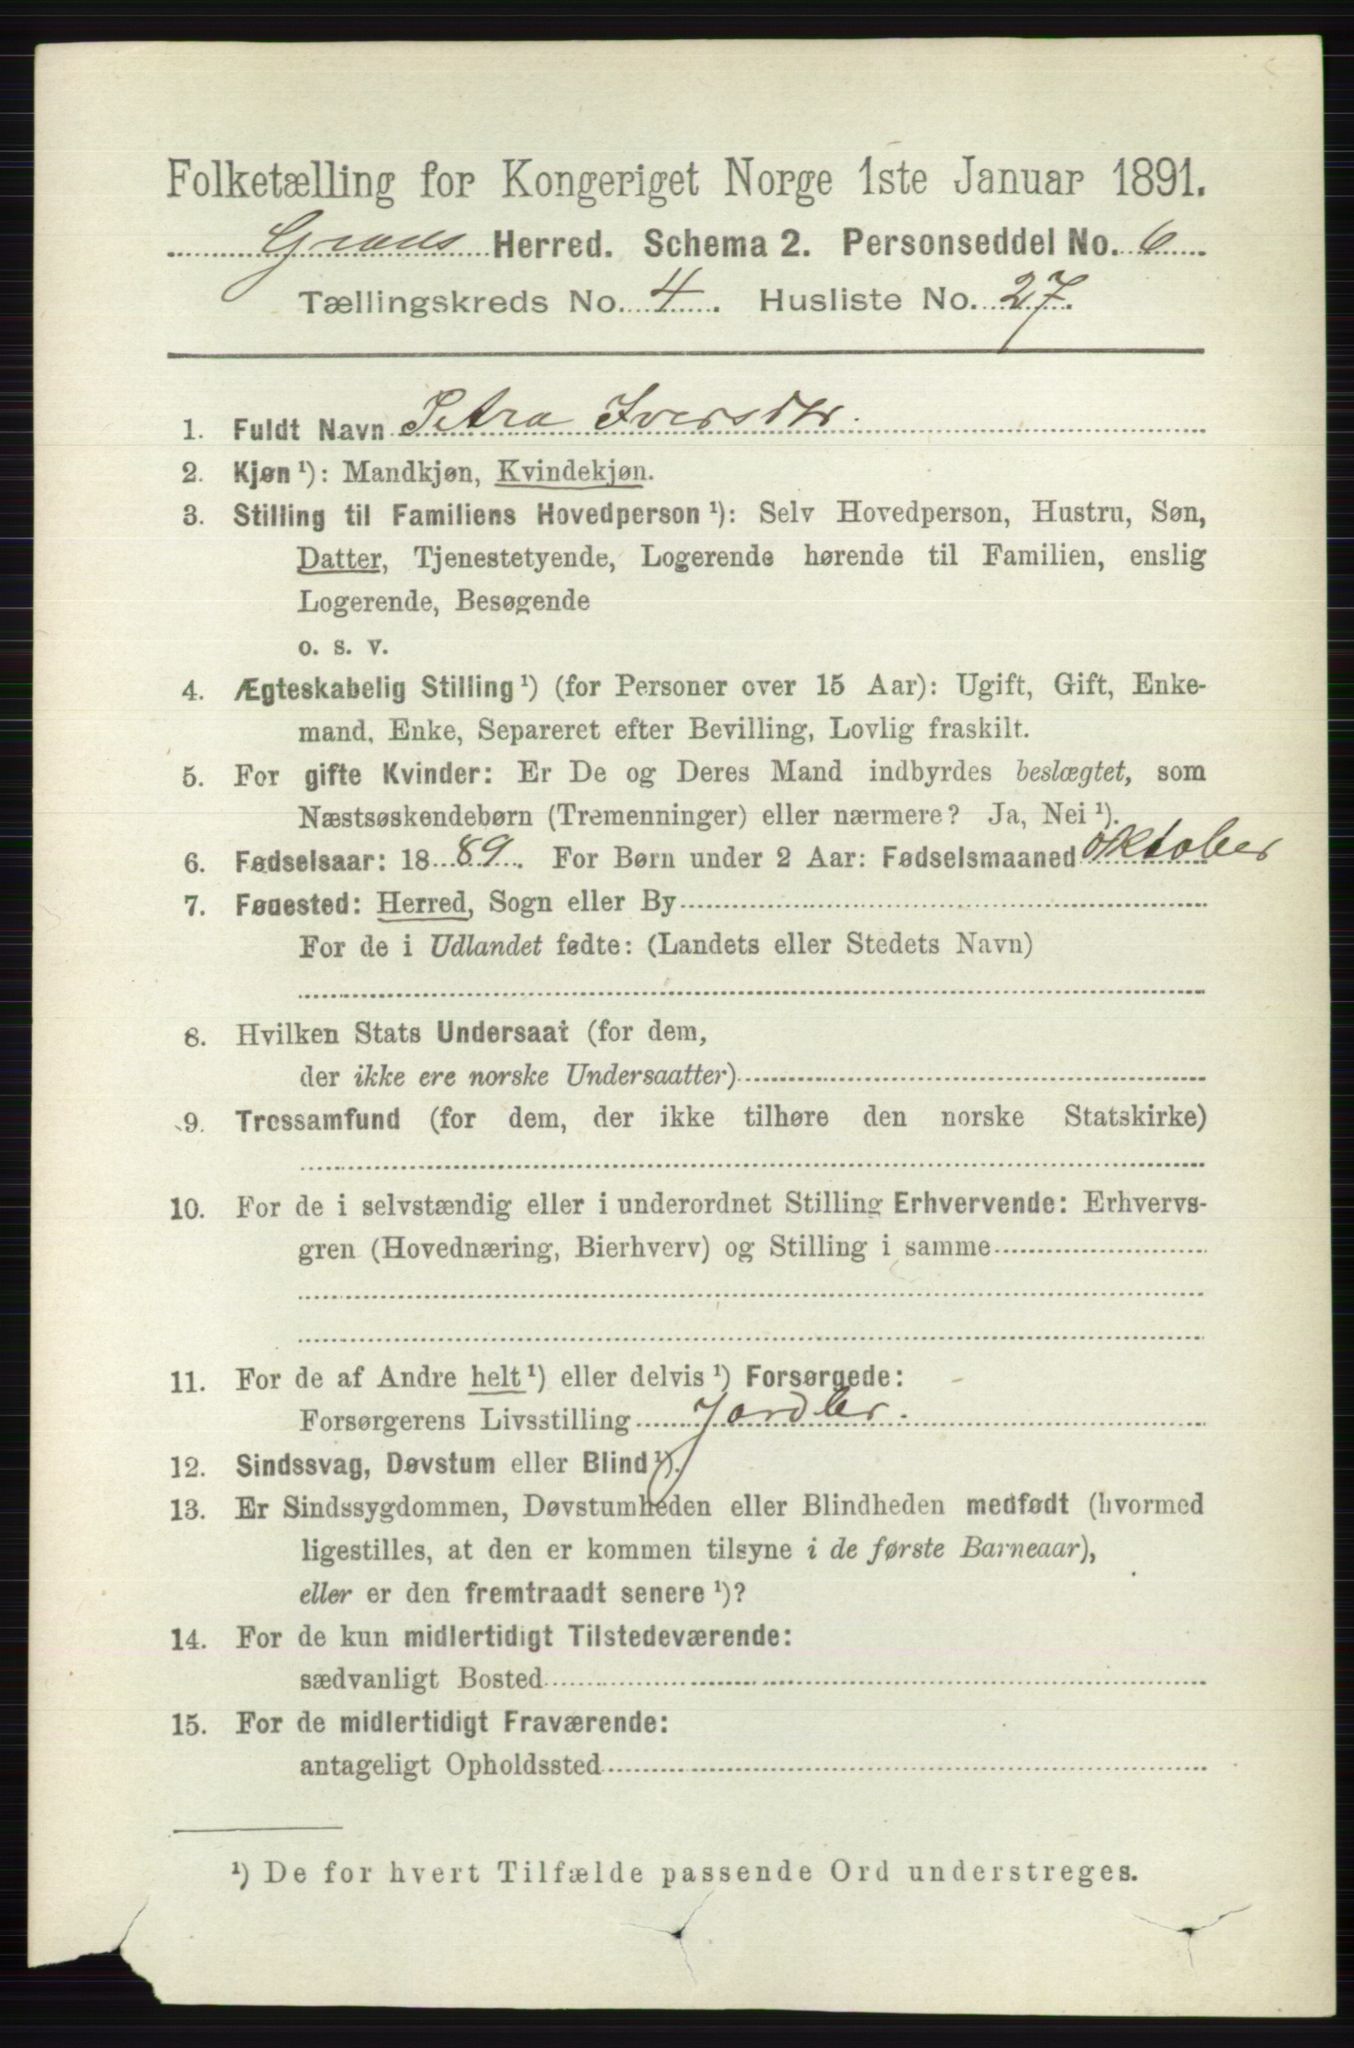 Folketælling for Kongeriget Norge 1ste Januar 1891.
Grans Herred. Schema 2. Personseddel No. 6
Tællingskreds No. 4. Husliste No. 27.
1. Fuldt Navn Petra Iversdtr.
2. Kjøn ¹): Mandkjøn, Kvindekjøn.
3. Stilling til Familiens Hovedperson ¹): Selv Hovedperson, Hustru, Søn,
Datter, Tjenestetyende, Logerende hørende til Familien, enslig
Logerende, Besøgende
o. s. v.
4. Ægteskabelig Stilling ¹) (for Personer over 15 Aar): Ugift, Gift, Enke-
mand, Enke, Separeret efter Bevilling, Lovlig fraskilt.
5. For gifte Kvinder: Er De og Deres Mand indbyrdes beslægtet, som
Næstsøskendebørn (Tremenninger) eller nærmere? Ja, Nei ¹).
6. Fødselsaar: 1889. For Børn under 2 Aar: Fødselsmaaned oktober
7. Fødested: Herred, Sogn eller By
For de i Udlandet fødte: (Landets eller Stedets Navn)
8. Hvilken Stats Undersaat (for dem,
der ikke ere norske Undersaatter)
9. Trossamfund (for dem, der ikke tilhøre den norske Statskirke)
10. For de i selvstændig eller i underordnet Stilling Erhvervende: Erhvervs-
gren (Hovednæring, Bierhverv) og Stilling i samme
11. For de af Andre helt ¹) eller delvis ¹) Forsørgede:
Forsørgerens Livsstilling Jordbr.
12. Sindssvag, Døvstum eller Blind ¹).
13. Er Sindssygdommen, Døvstumheden eller Blindheden medfødt (hvormed
ligestilles, at den er kommen tilsyne i de første Barneaar),
eller er den fremtraadt senere ¹)?
14. For de kun midlertidigt Tilstedeværende:
sædvanligt Bosted
15. For de midlertidigt Fraværende:
antageligt Opholdssted
¹) De for hvert Tilfælde passende Ord understreges.